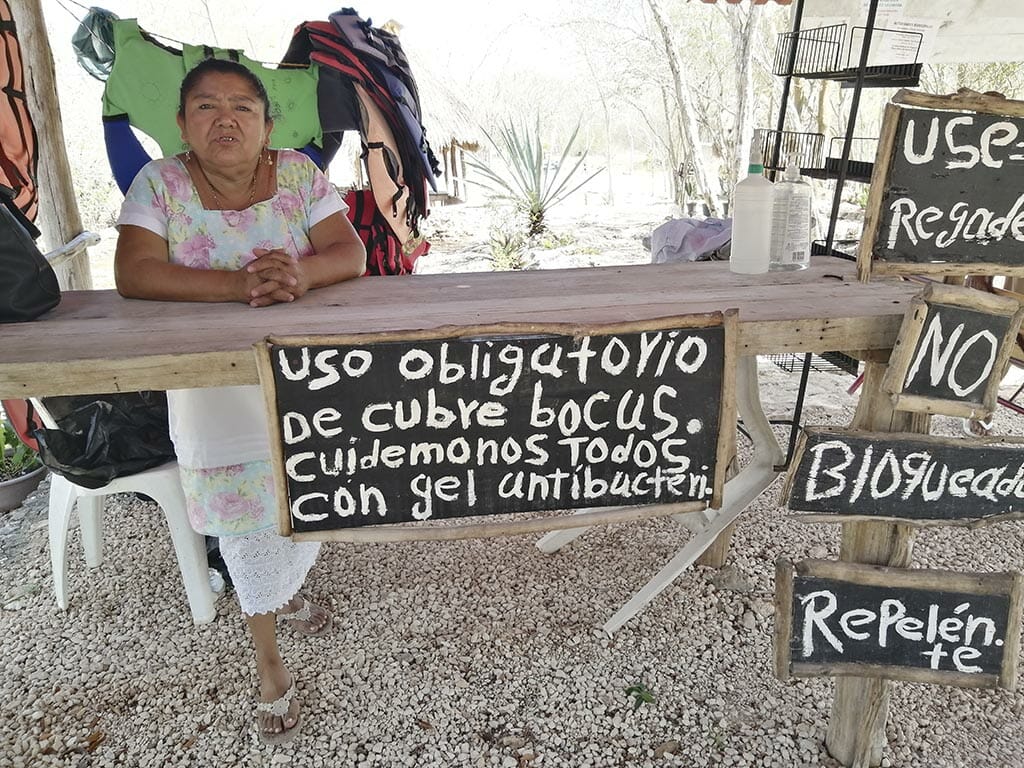 uso obligatorio
De cubre bocus.
cuidemonos Todos
con gel antibacteri.
use=
Regade
NO
Bloqueado
Repelén.
te